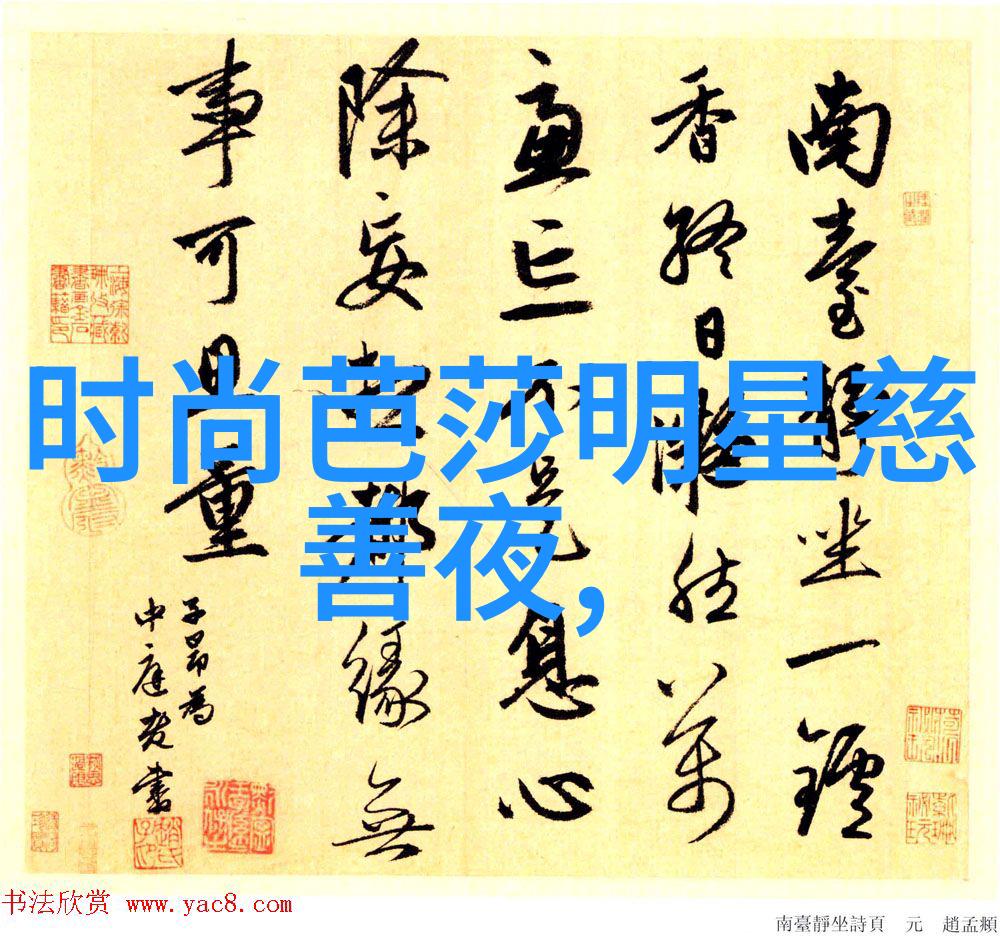 南臺靜坐一鑪
香終日凝然萬
慮亡不是息心
除妄想都緣無
事可思量
子昂為
中庭老書
时尚芭莎明星慈
善夜,
书法欣赏 www.yac8.com
南臺靜坐詩頁 元 趙孟頫